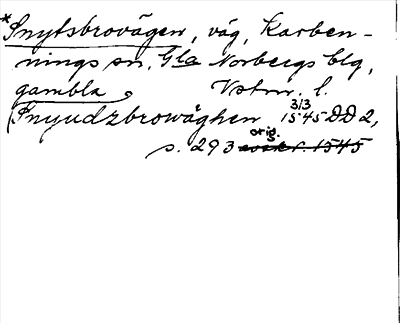 *Snytsbrovägen, väg, Karben-
nings sn, Gla Norbergs blg,
gambla Vstm. l.
Snyudzbrowäghen 3/3 1545 DD 2,
orig.
s. 293 avskr. 1545